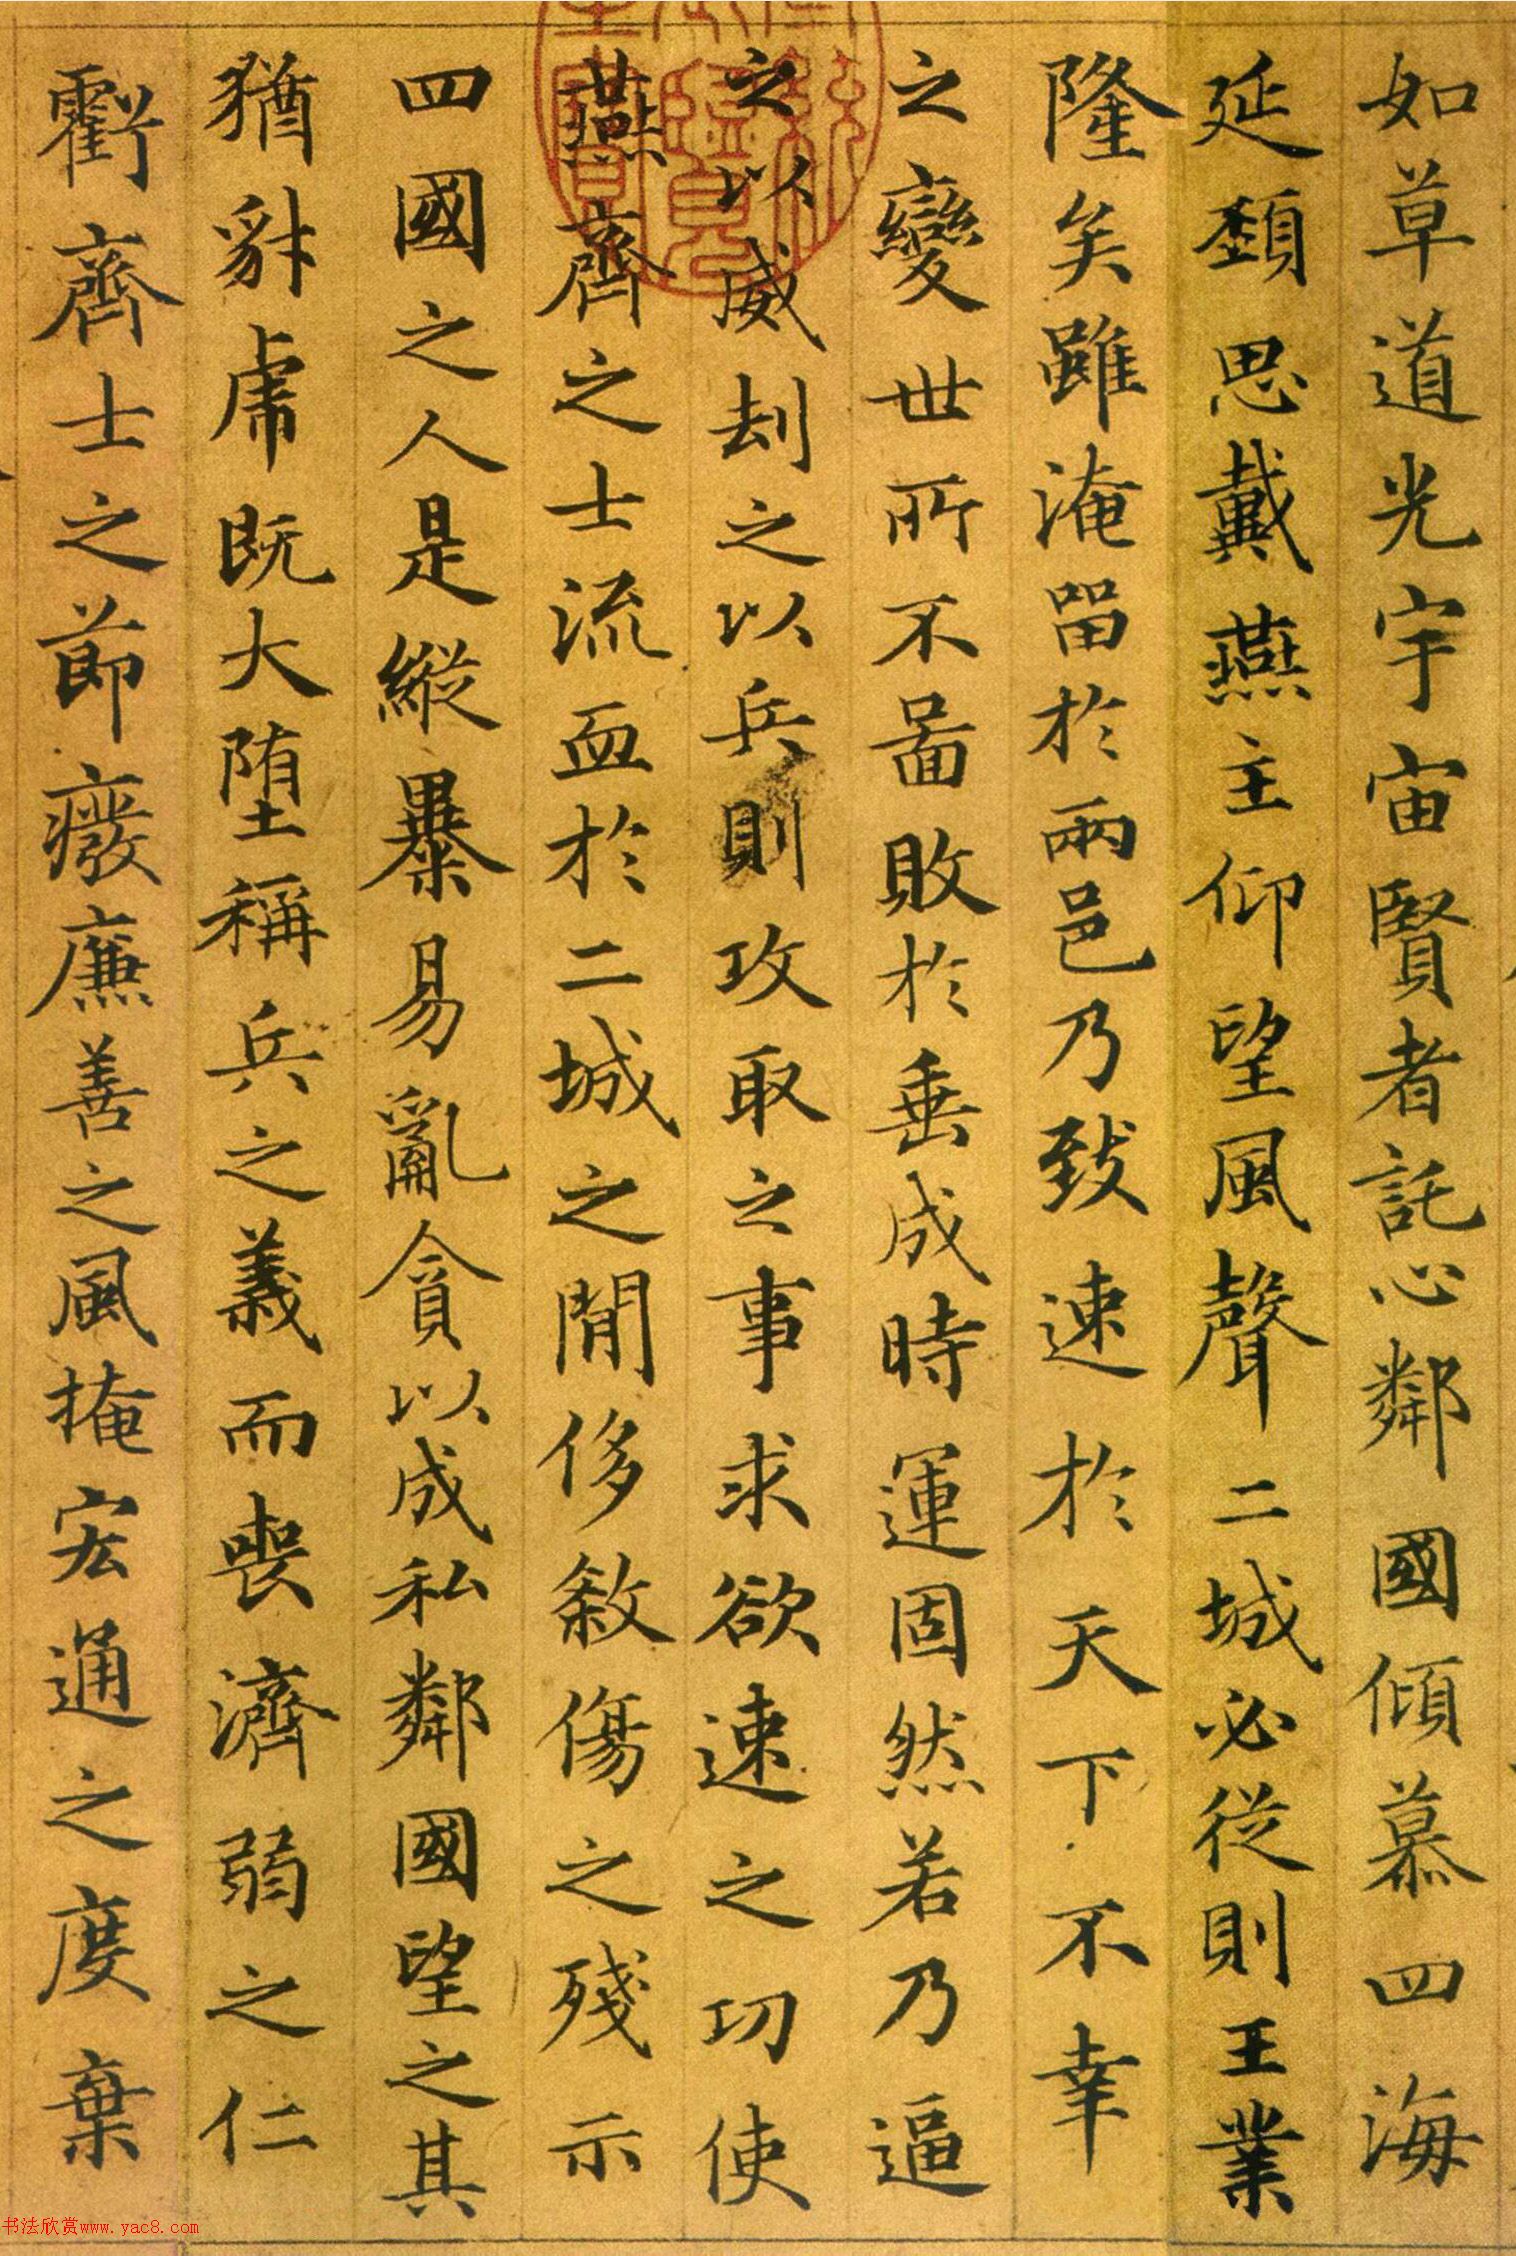 如草道光宇宙賢者託心鄰國傾慕四海
延頸思戴燕主仰望風聲二城必從則王業
隆矣雖淹留於兩邑乃致速於天下不幸
之變世所不啚敗於垂成時運固然若乃逼
之以威刦之以兵則攻取之事求欲速之功使
燕齊之士流血於二城之閒侈敘傷之殘示
四國之人是縱暴易亂貪以成私鄰國望之其
猶豺虎既大墮稱兵之義而喪濟弱之仁
虧齊士之節廢廉善之風掩宏通之度棄
书法欣赏www.yac8.com